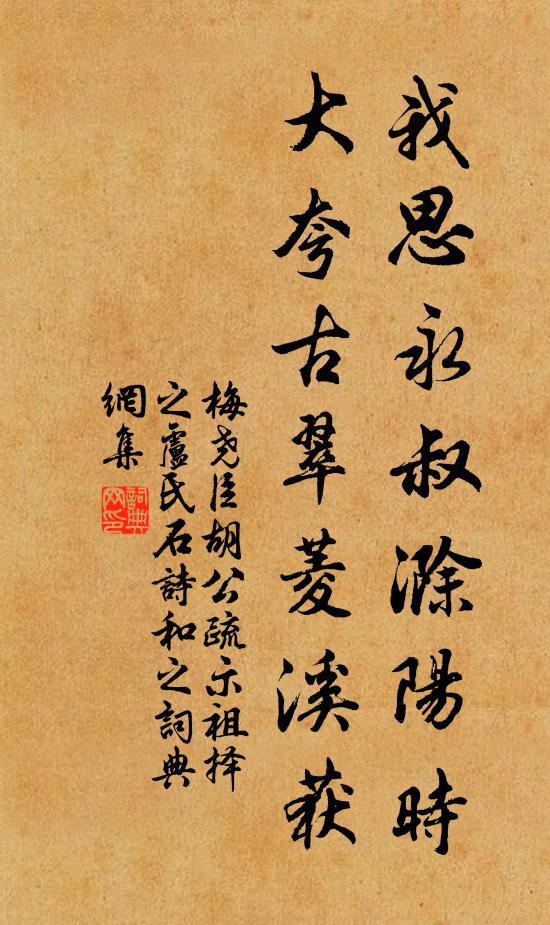 我思永叔滁陽時
大夸古翠菱溪获
梅尧臣胡公疏示祖择
之盧氏石詩和之詞典
網集
詞典
网印